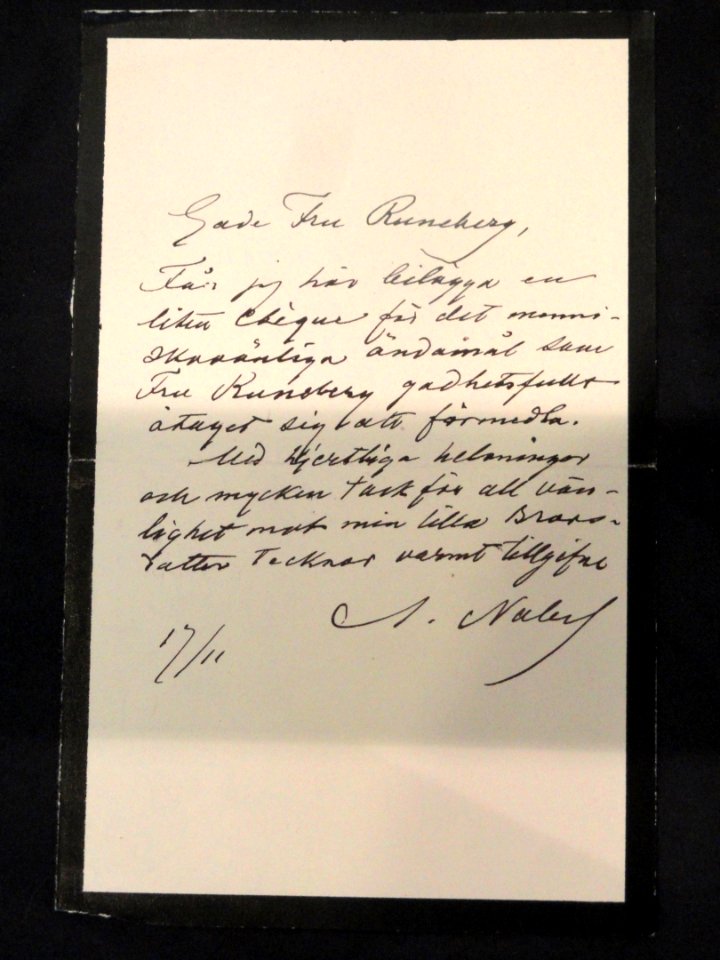 Goda Fru Runeberg,
Får jag här bilägga en
liten chèque för det menni-
skovänliga ändamål som
Fru Runeberg godhetsfullt
åtaget sig att förmedla.
Med hjertliga helsningar
och mycken tack för all vän-
lighet mot min lilla Brors-
dotter tecknar varmt tillgifne
A. Nobel
17/11